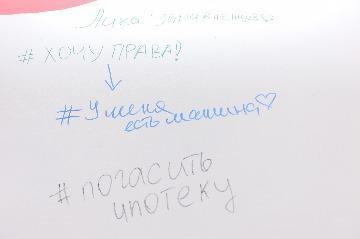 # ХОЧУ ПРАВА!
# У меня
есть машина♡
# погасить
ипотеку